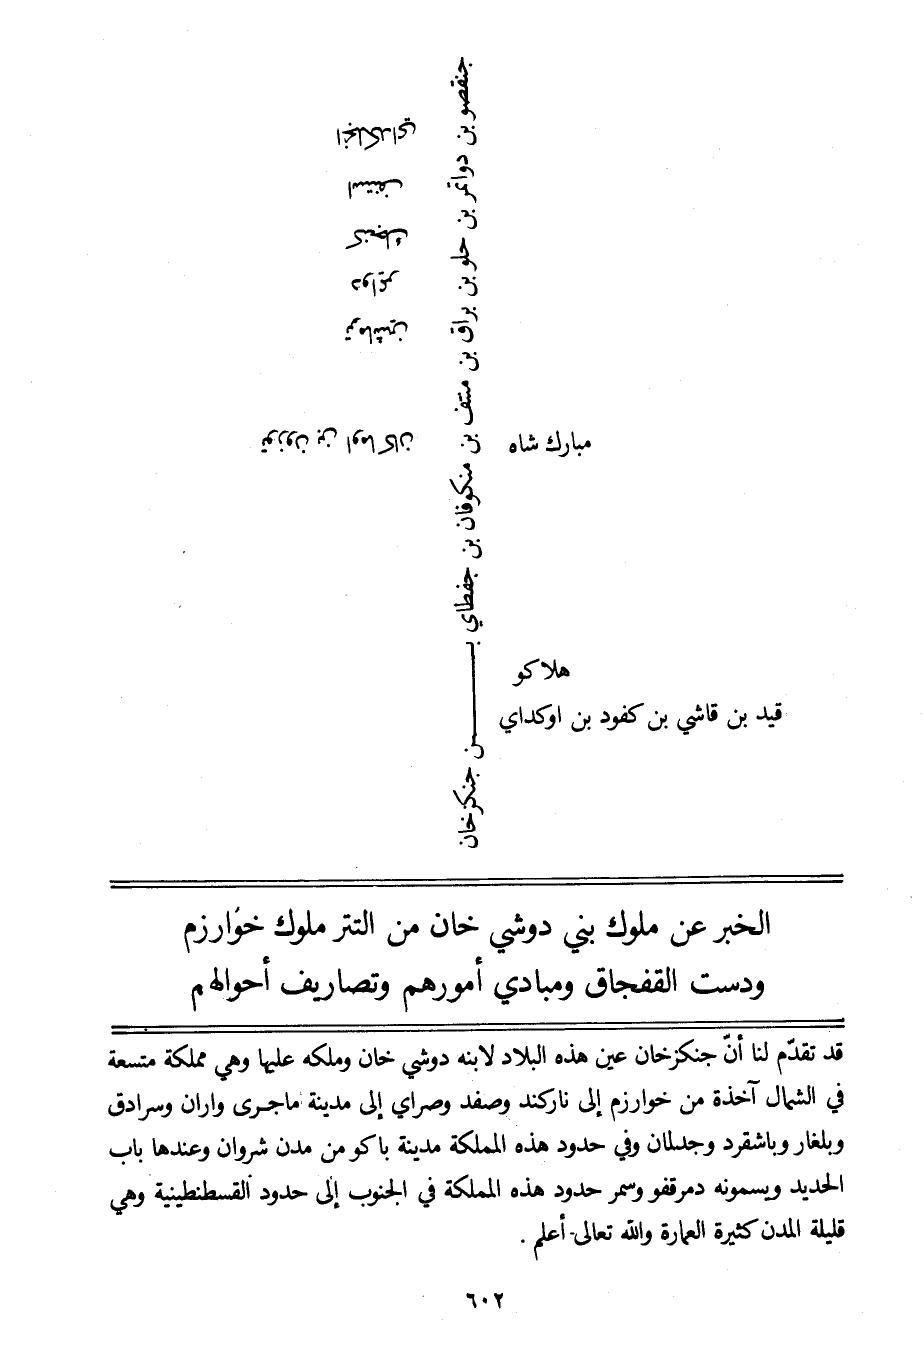 جنقصو بن دواتمر بن حلو بن براق بن منتف بن منكوفان بن جفطاي بن جنكزخان
انجلكداي
استبف
كنجك
دواتمر
ترماشين
توزون بن اوماكان
مبارك شاه
هلاكو
قيد بن قاشي بن كفود بن اوكداي
الخبر عن ملوك بني دوشي خان من التتر ملوك خوارزم
ودست القفجاق ومبادي أمورهم وتصاريف أحوالهم
قد تقدّم لنا أنّ جنكزخان عين هذه البلاد لابنه دوشي خان وملكه عليها وهي مملكة متسعة
في الشمال آخذة من خوارزم إلى ناركند وصفد وصراي إلى مدينة ماجرى واران وسرادق
وبلغار وباشقرد وجدلمان وفي حدود هذه المملكة مدينة باكو من مدن شروان وعندها باب
الحديد ويسمونه دمرقفو وسمر حدود هذه المملكة في الجنوب إلى حدود القسطنطينية وهي
قليلة المدن كثيرة العمارة والله تعالى أعلم .
٦٠٢